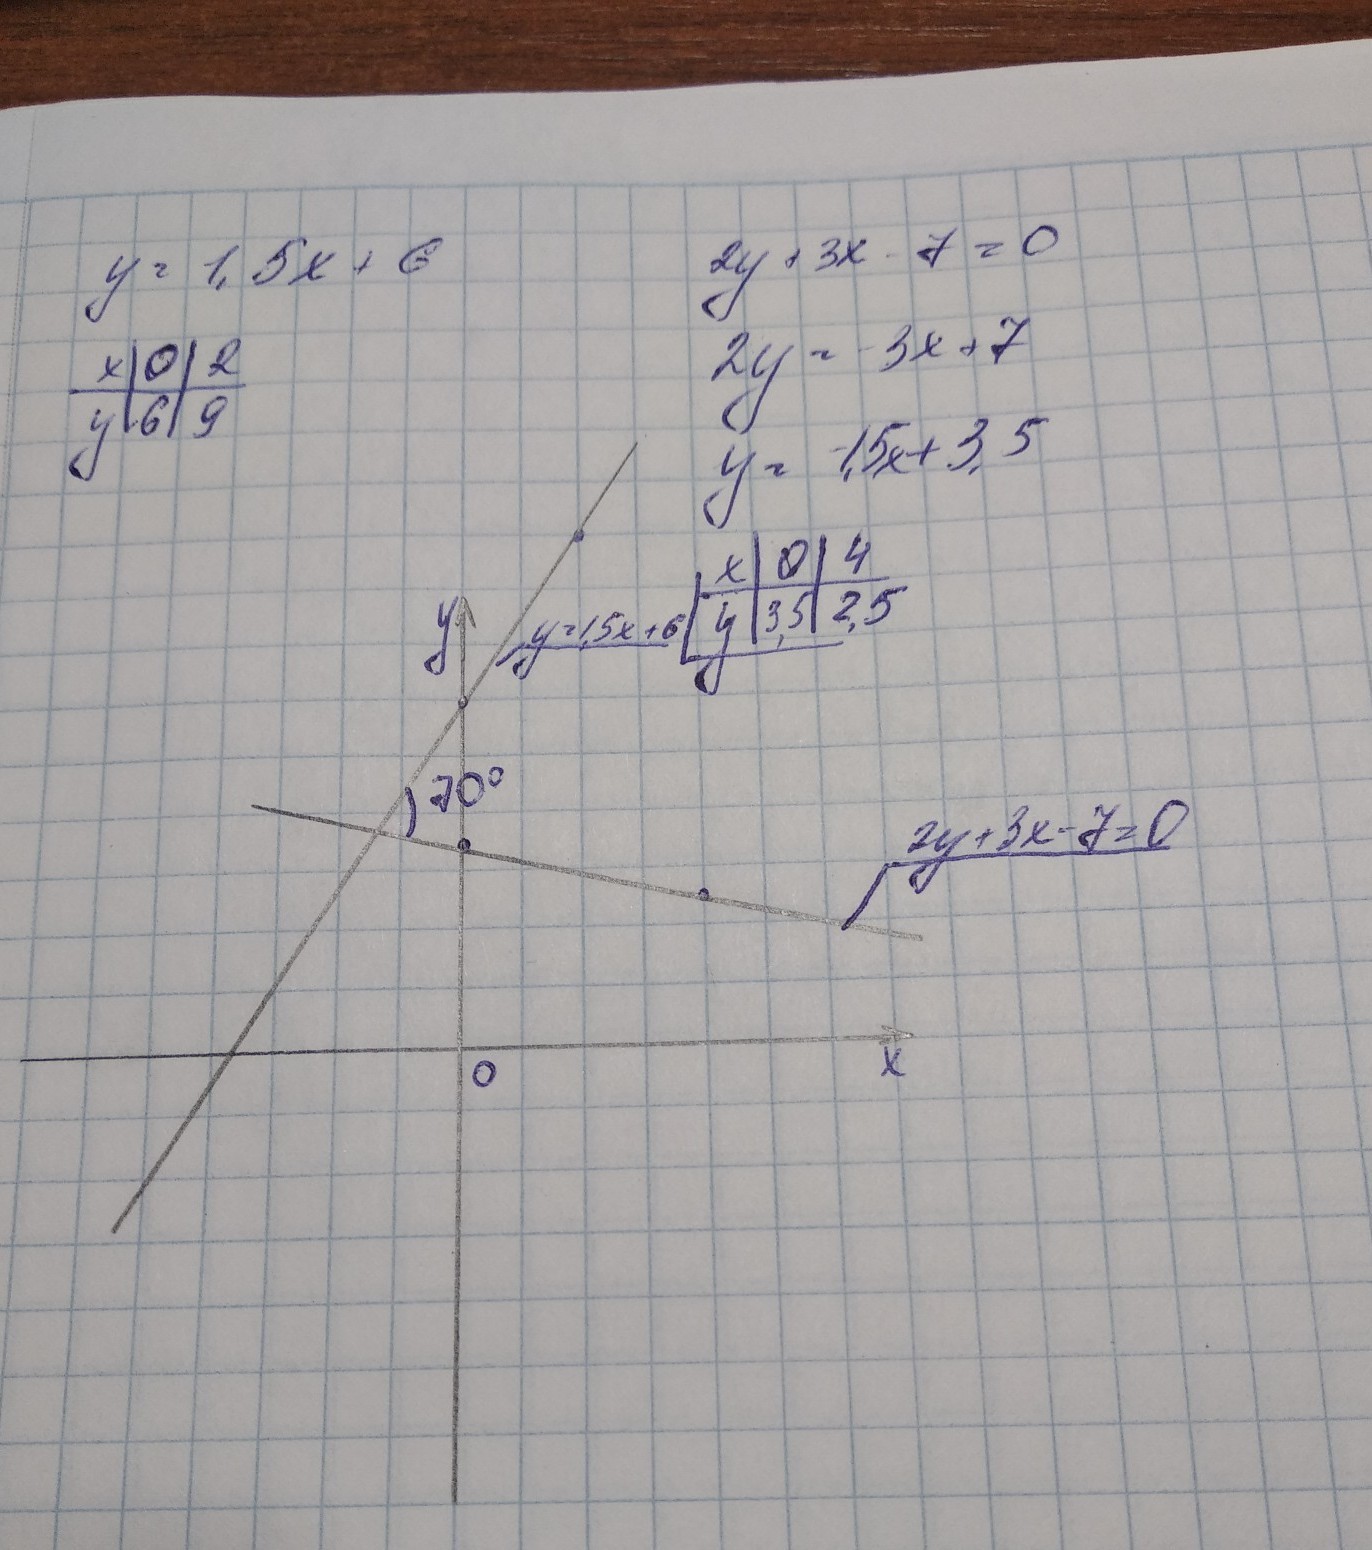 y = 1,5x + 6
x | 0 | 2
y | 6 | 9
2y + 3x - 7 = 0
2y = -3x + 7
y = -1,5x + 3,5
x | 0 | 4
y | 3,5 | 2,5
y
y = 1,5x + 6
70°
2y + 3x - 7 = 0
0
x